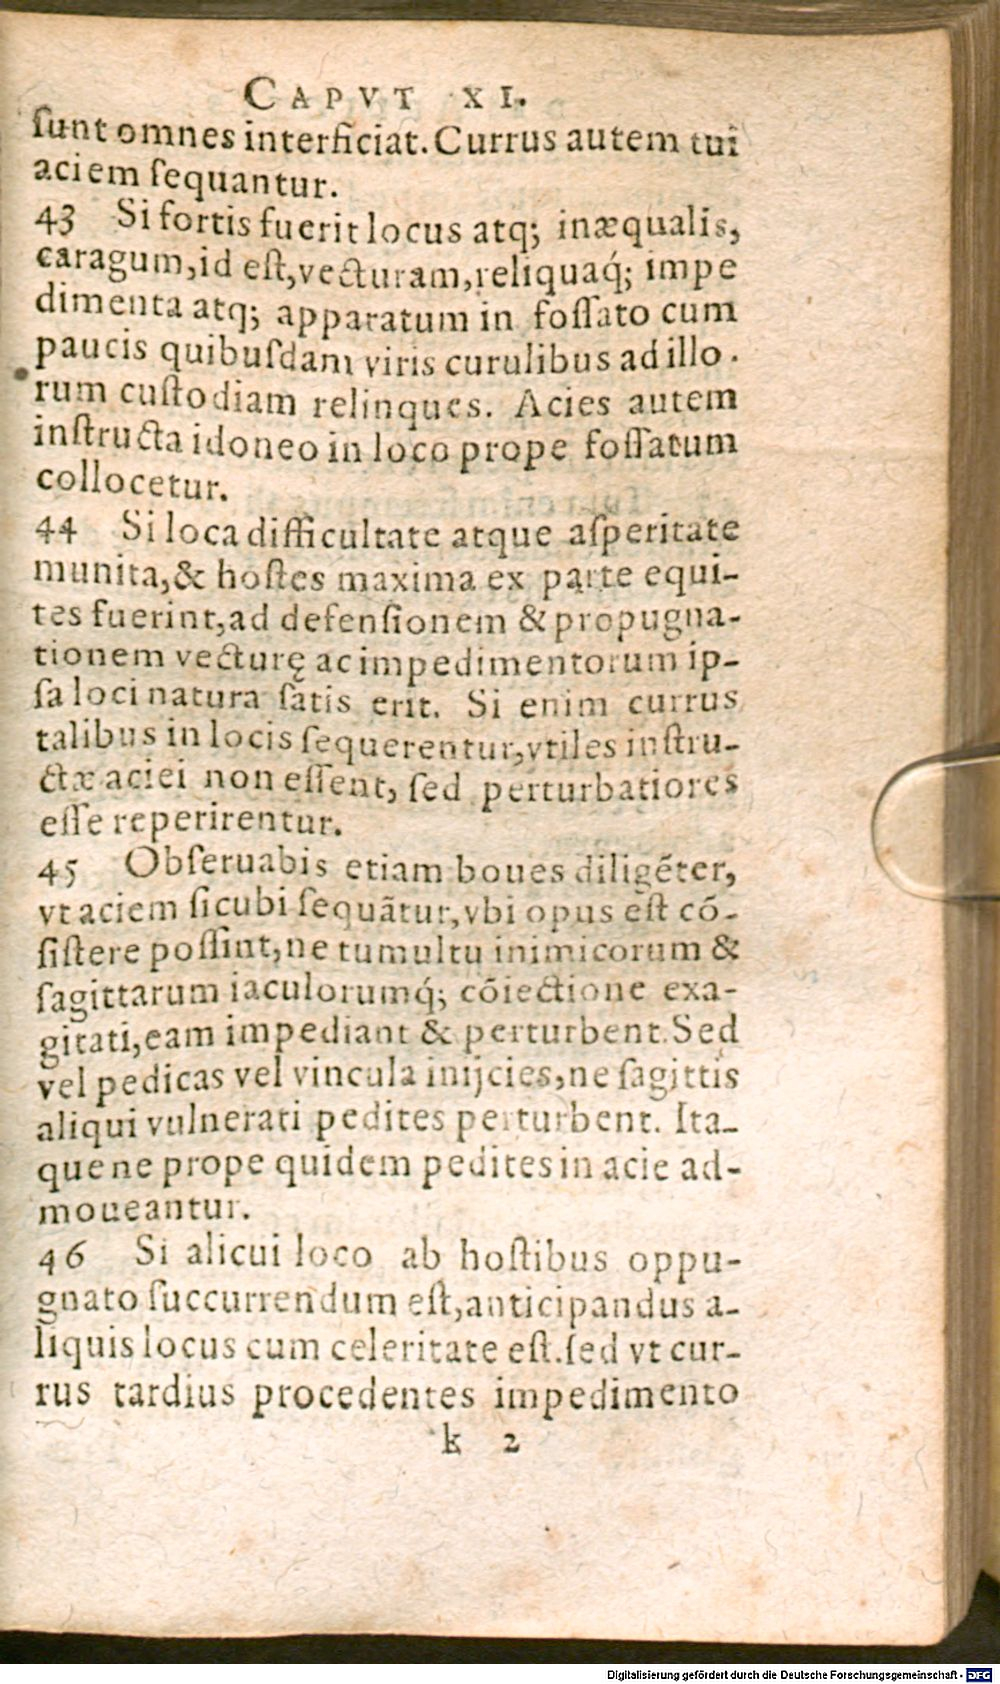 CAPVT XI.
ſunt omnes interficiat. Currus autem tui
aciem ſequantur.
43 Si fortis fuerit locus atq; inæqualis,
caragum, id eſt, vecturam, reliquaq́; impe
dimenta atq; apparatum in foſſato cum
paucis quibuſdam viris curulibus ad illo.
rum cuſtodiam relinques. Acies autem
inſtructa idoneo in loco prope foſſatum
collocetur.
44 Si loca difficultate atque aſperitate
munita, & hoſtes maxima ex parte equi-
tes fuerint, ad defenſionem & propugna-
tionem vecturę ac impedimentorum ip-
ſa loci natura ſatis erit. Si enim currus
talibus in locis ſequerentur, vtiles inſtru-
ctæ aciei non eſſent, ſed perturbatiores
eſſe reperirentur.
45 Obſeruabis etiam boues diligẽter,
vt aciem ſicubi ſequãtur, vbi opus eſt cõ-
ſiſtere poſſint, ne tumultu inimicorum &
ſagittarum iaculorumq́; cõiectione exa-
gitati, eam impediant & perturbent. Sed
vel pedicas vel vincula inijcies, ne ſagittis
aliqui vulnerati pedites perturbent. Ita-
que ne prope quidem pedites in acie ad-
moueantur.
46 Si alicui loco ab hoſtibus oppu-
gnato ſuccurrendum eſt, anticipandus a-
liquis locus cum celeritate eſt. ſed vt cur-
rus tardius procedentes impedimento
k 2
Digitalisierung gefördert durch die Deutsche Forschungsgemeinschaft - DFG